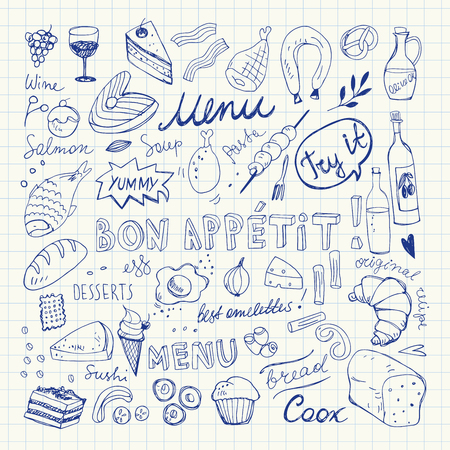 Wine
Menu
OLIVE OIL
Salmon
Soup
pasta
Try it
YUMMY
BON APPÉTIT!
ess
DESSERTS
original recipe
best omelettes!
MENU
Sushi
bread
Coox